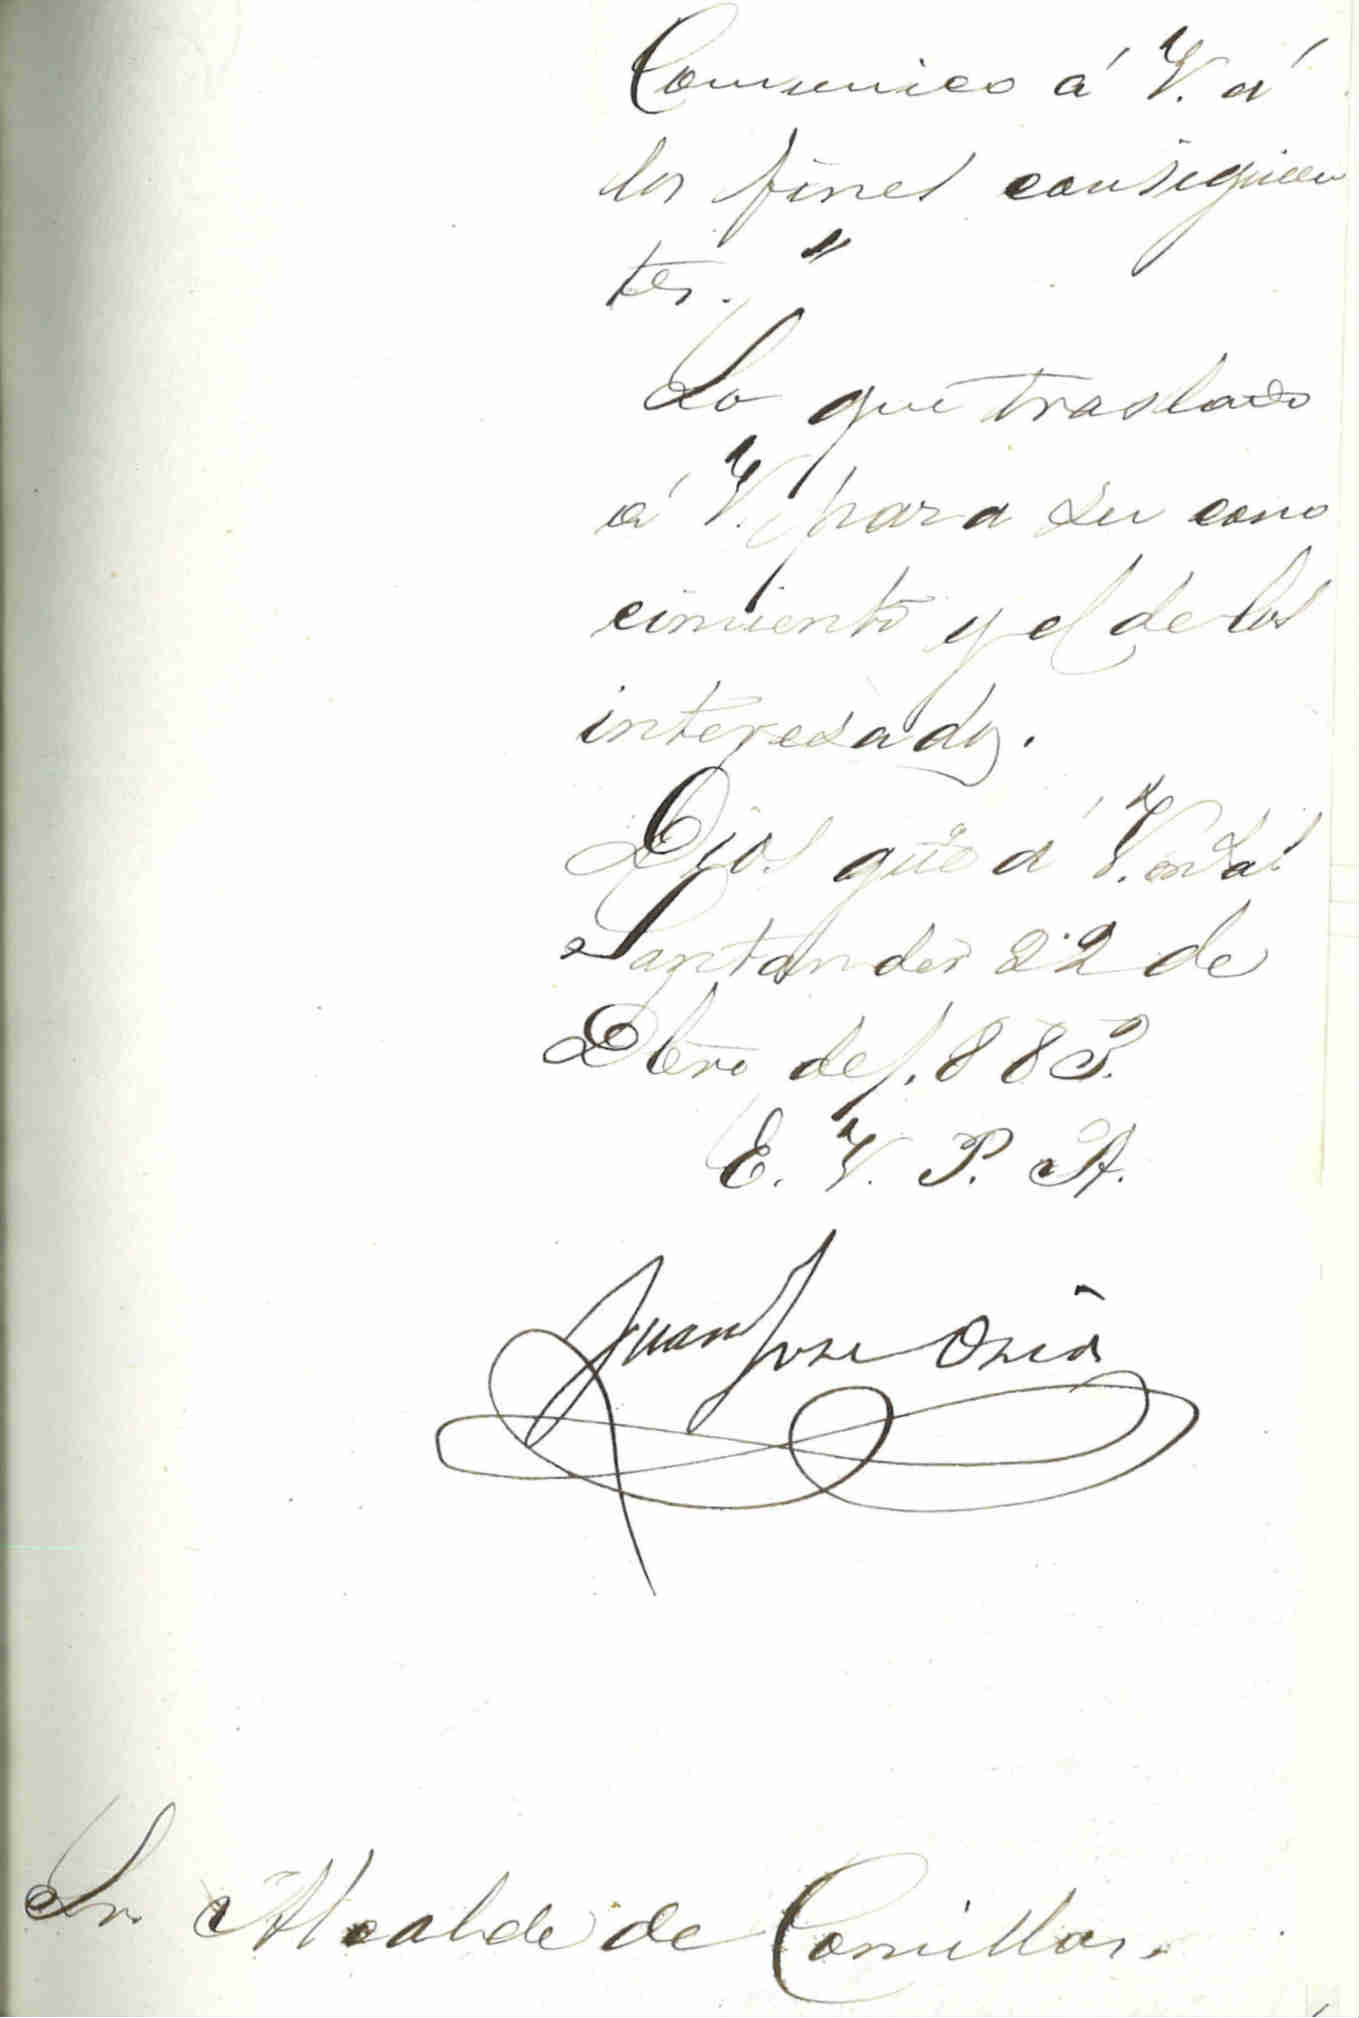 Comunico á V. á
los fines consiguien
tes."
Lo que traslado
á V. para su cono
cimiento y el de los
interesados.
Dios gue á V. ms as
Santander 22 de
Dbre de 1.883.
E. V. P. A.
Juan José Oria
Sr. Alcalde de Comillas.